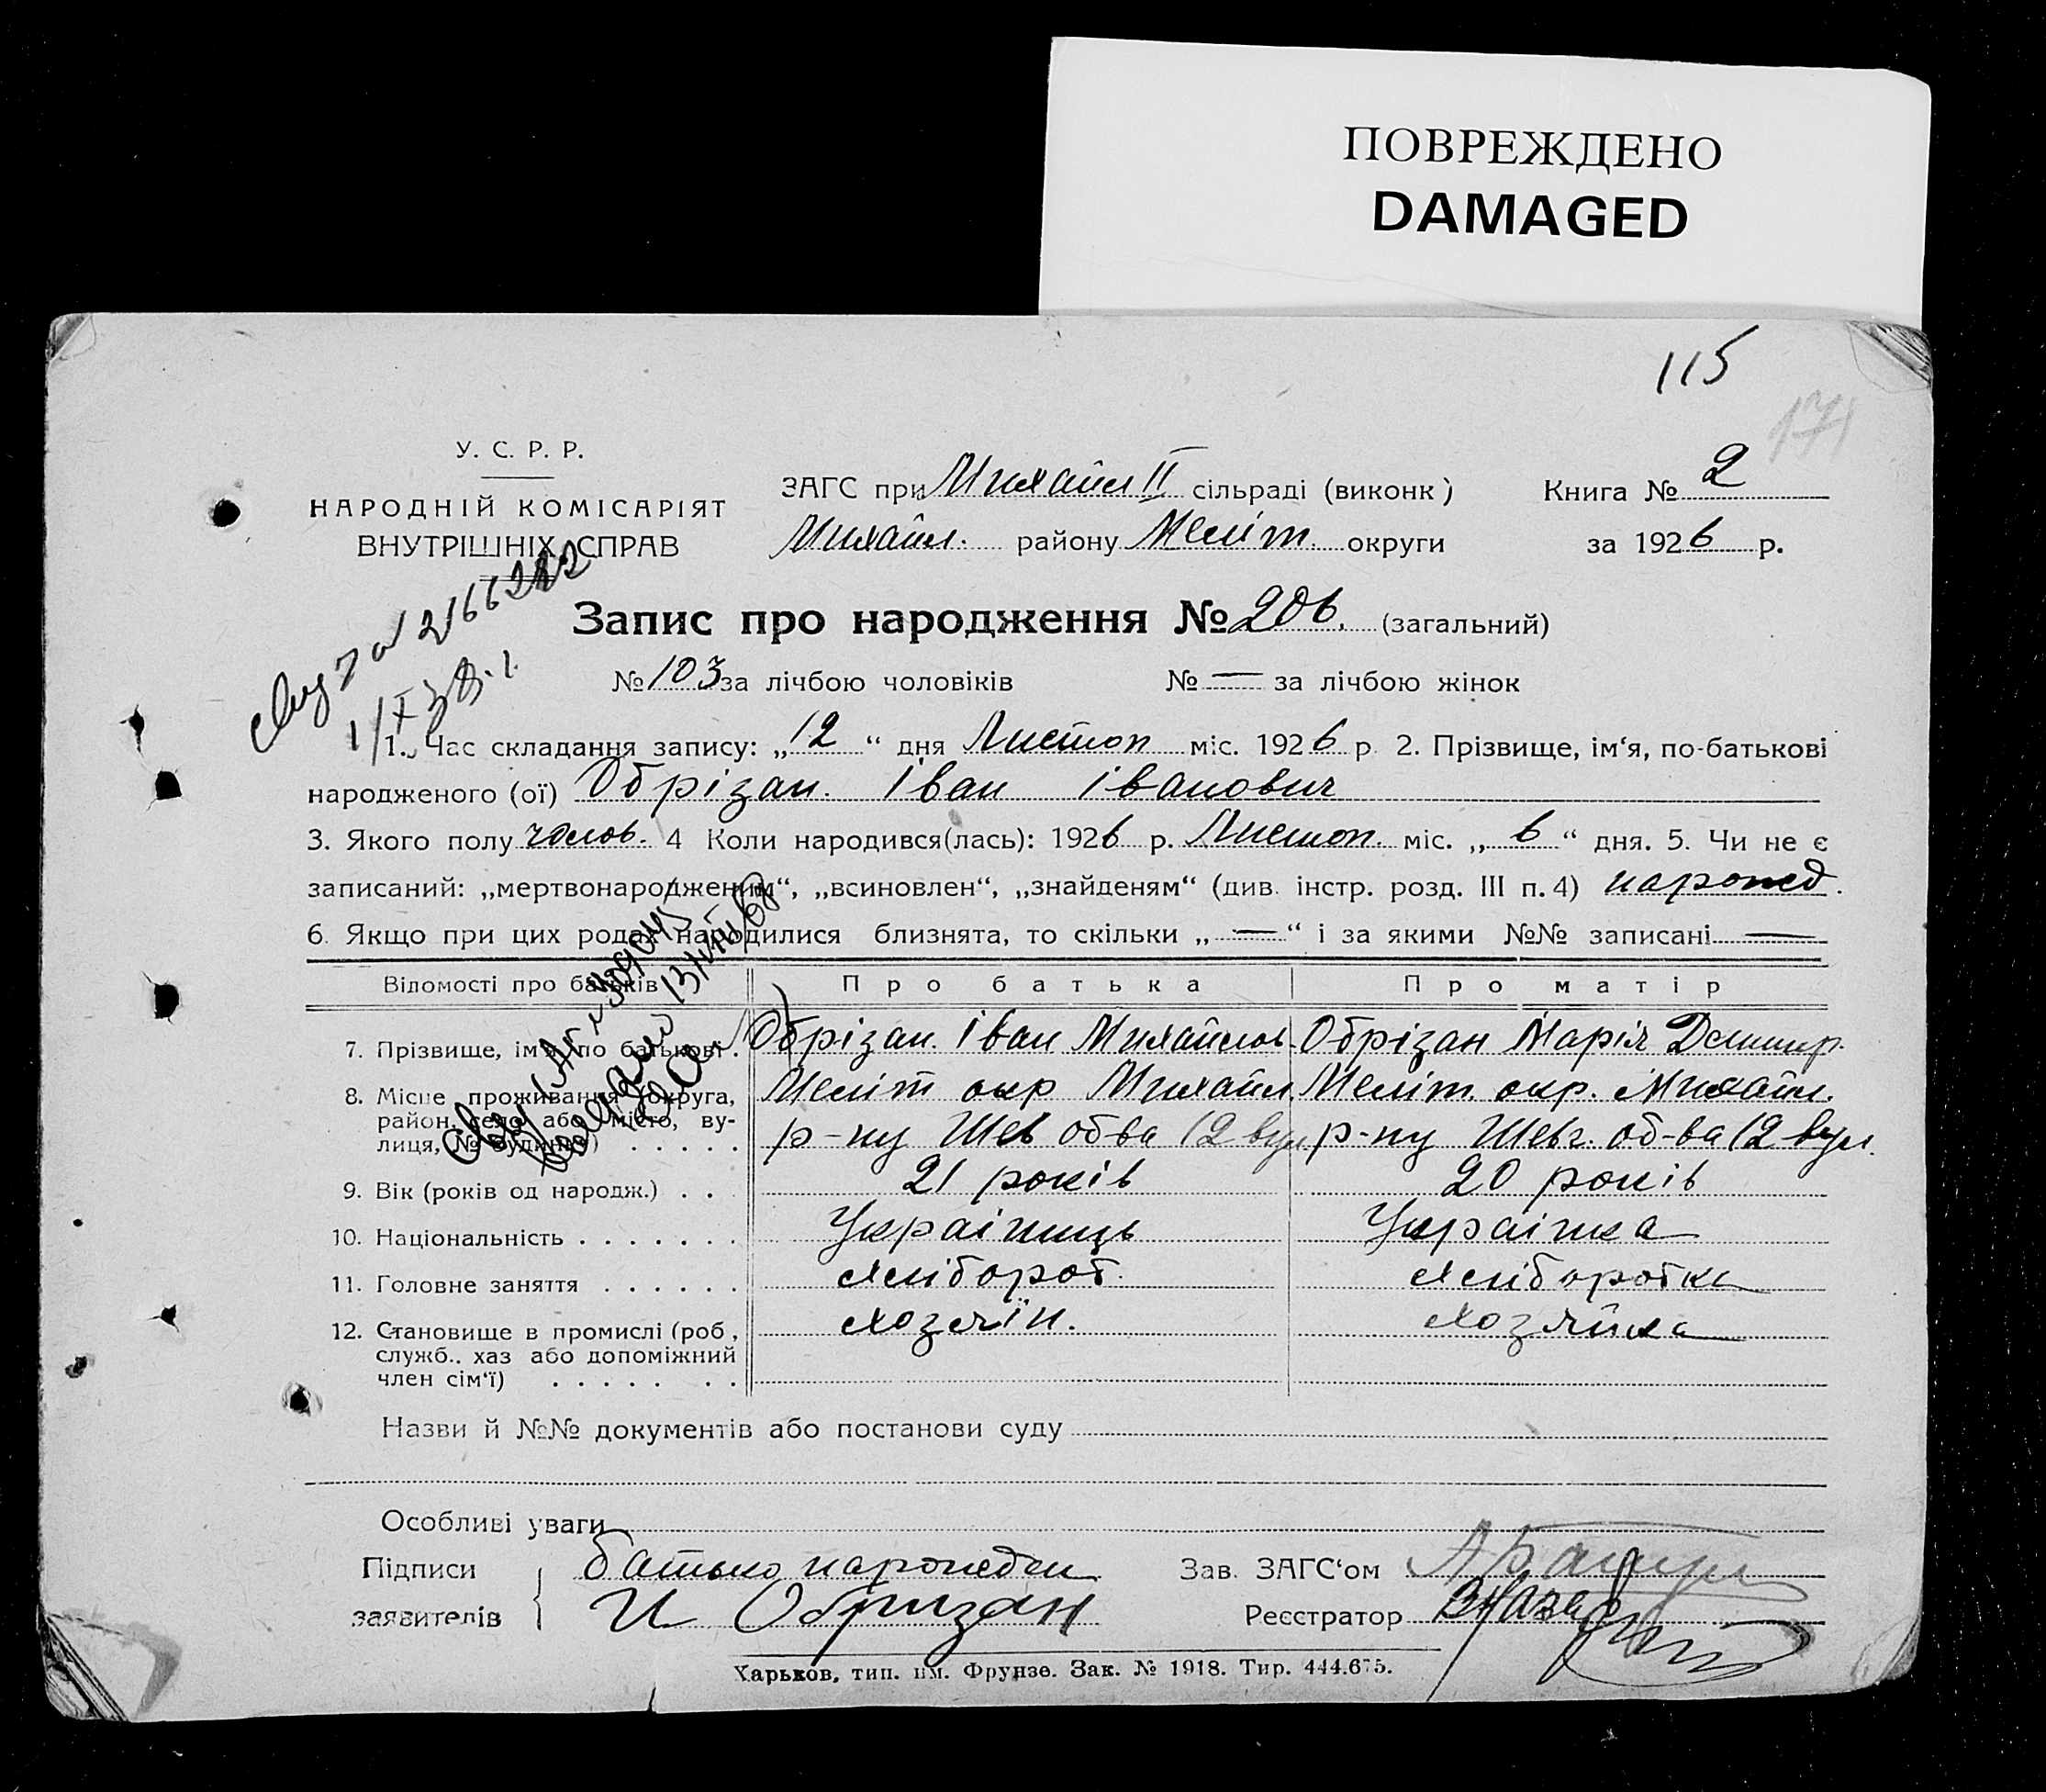 ПОВРЕЖДЕНО
DAMAGED
115
171
У. С. Р. Р.
НАРОДНІЙ КОМІСАРІЯТ
ВНУТРІШНІХ СПРАВ
ЗАГС при Михайл II сільраді (виконк)
Михайл. району Меліт. округи
Книга № 2
за 1926 р.
Запис про народження № 206. (загальний)
№ 103 за лічбою чоловіків № — за лічбою жінок
1. Час складання запису: „12“ дня Листоп міс. 1926 р 2. Прізвище, ім‘я, по-батькові
народженого (ої) Обрізан. Іван Іванович
3. Якого полу чолов. 4 Коли народився(лась): 1926 р. Листоп. міс. „6“ дня. 5. Чи не є
записаний: „мертвонародженим“, „всиновлен“, „знайденям“ (див. інстр. розд. III п. 4) народ.
6. Якщо при цих родах народилися близнята, то скільки „—“ і за якими №№ записані —
Відомості про батьків Про батька Про матір
7. Прізвище, ім‘я, по батькові. Обрізан. Іван Михайлов. Обрізан Марія
8. Місце проживання (округа, Меліт окр Михайл. Меліт. окр. Михайл.
район, село або місто, ву- р-ну Шев об-ва (2 вул р-ну Шевч. об-ва (2 вул.
лиця, № будинку) . . . . .
9. Вік (років од народж.) . . 21 років 20 років
10. Національність . . . . . . . Українць Українка
11. Головне заняття . . . . . . хлібороб. хліборобка
12. Становище в промислі (роб, хозяїн. хозяйка
служб.. хаз або допоміжний
член сім‘ї) . . . . . . .
Назви й №№ документів або постанови суду
Особливі уваги
Підписи батько народж
заявителів И Обризан
Зав. ЗАГС‘ом
Реєстратор
Харьков, тип. им. Фрунзе. Зак. № 1918. Тир. 444.675.